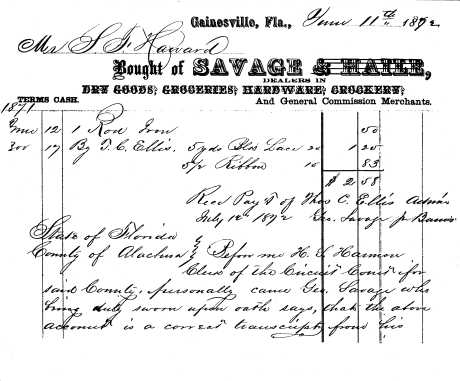 Gainesville, Fla., June 11th 1872
Mr S. F. Haward
Bought of SAVAGE & HAILE,
DEALERS IN
DRY GOODS, GROCERIES, HARDWARE, CROCKERY,
TERMS CASH. And General Commission Merchants.
1871
June 12 1 Rod Iron 50
17 By T. C. Ellis, 5 yds Lace 20 1 25
Ribbon 83
$ 2 58
Recd Pay't of Thos C. Ellis Admin
July 12 1872 Geo. Savage
State of Florida
County of Alachua Before me H. S. Harmon
Clerk of the Circuit Court for
said County, personally came Geo. Savage who
being duly sworn upon oath says, that the above
account is a correct transcript, from his